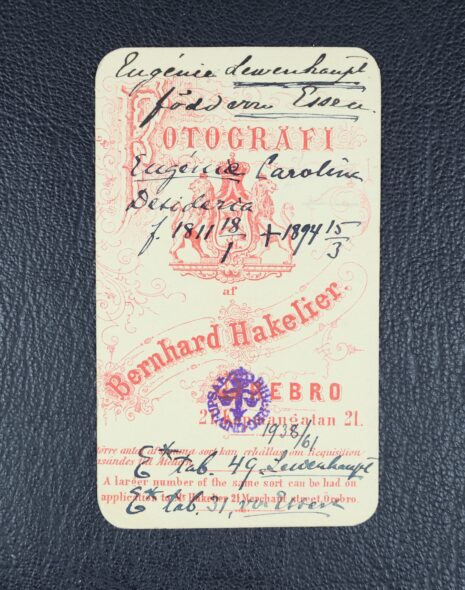 Eugénie Lewenhaupt
född von Essen.
FOTOGRAFI
Eugénie Carolina
Desideria
f. 1811 18/1 + 1894 15/3
af
Bernhard Hakelier.
ÖREBRO
21. Köpmangatan 21.
1938/61
större antal af samma sort kan erhållas om Requisition
insändes till Atelier
E* Tab. 49, Lewenhaupt
A larger number of the same sort can be had on
application to Mr Hakelier 21 Merchant street Örebro.
E* Tab. 31, von Essen